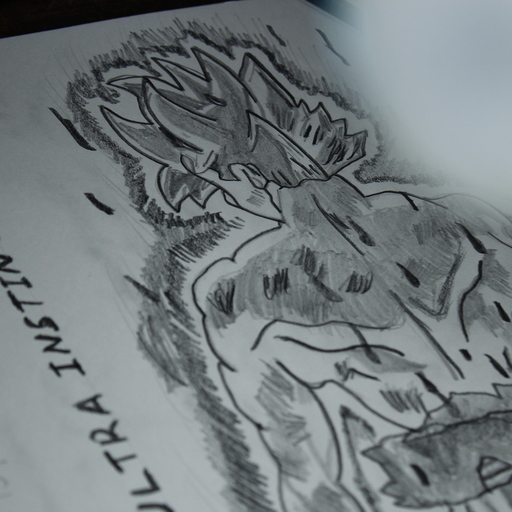 ULTRA INSTIN